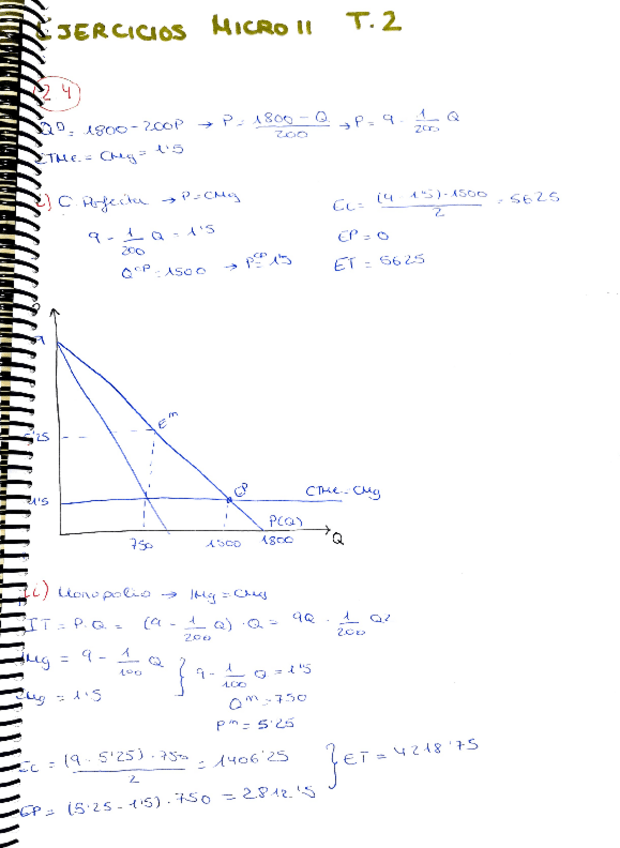 EJERCICIOS MICRO II T.2
24
Qᴰ = 1800 - 200P → P = (1800 - Q)/200 → P = 9 - 1/200 Q
CTMe = CMg = 1'5
i) C. Perfecta → P = CMg
9 - 1/200 Q = 1'5
Qᶜᵖ = 1500 → Pᶜᵖ = 1'5
EC = (9 - 1'5) · 1500 / 2 = 5625
EP = 0
ET = 5625
9
Eᵐ
5'25
1'5
CTMe = CMg
P(Q)
750 1500 1800 Q
ii) Monopolio → IMg = CMg
IT = P · Q = (9 - 1/200 Q) · Q = 9Q - 1/200 Q²
IMg = 9 - 1/100 Q } 9 - 1/100 Q = 1'5
CMg = 1'5
Qᵐ = 750
Pᵐ = 5'25
EC = (9 - 5'25) · 750 / 2 = 1406'25 } ET = 4218'75
EP = (5'25 - 1'5) · 750 = 2812'5